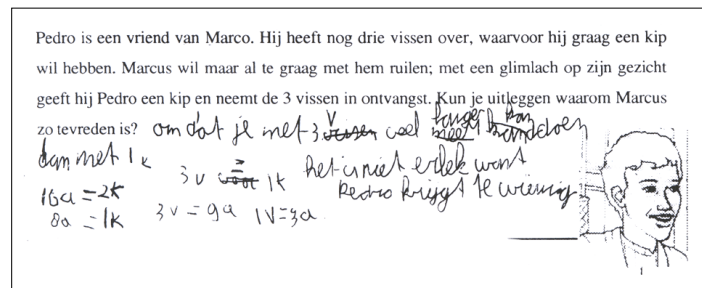 Pedro is een vriend van Marco. Hij heeft nog drie vissen over, waarvoor hij graag een kip
wil hebben. Marcus wil maar al te graag met hem ruilen; met een glimlach op zijn gezicht
geeft hij Pedro een kip en neemt de 3 vissen in ontvangst. Kun je uitleggen waarom Marcus
zo tevreden is? om dat je met 3 v vissen veel langer kan doen
dan met 1k
3v = 1k het is niet erlek want
Pedro krijgt te wienig
16a = 2k
8a = 1k 3v = 9a 1v = 3a
1